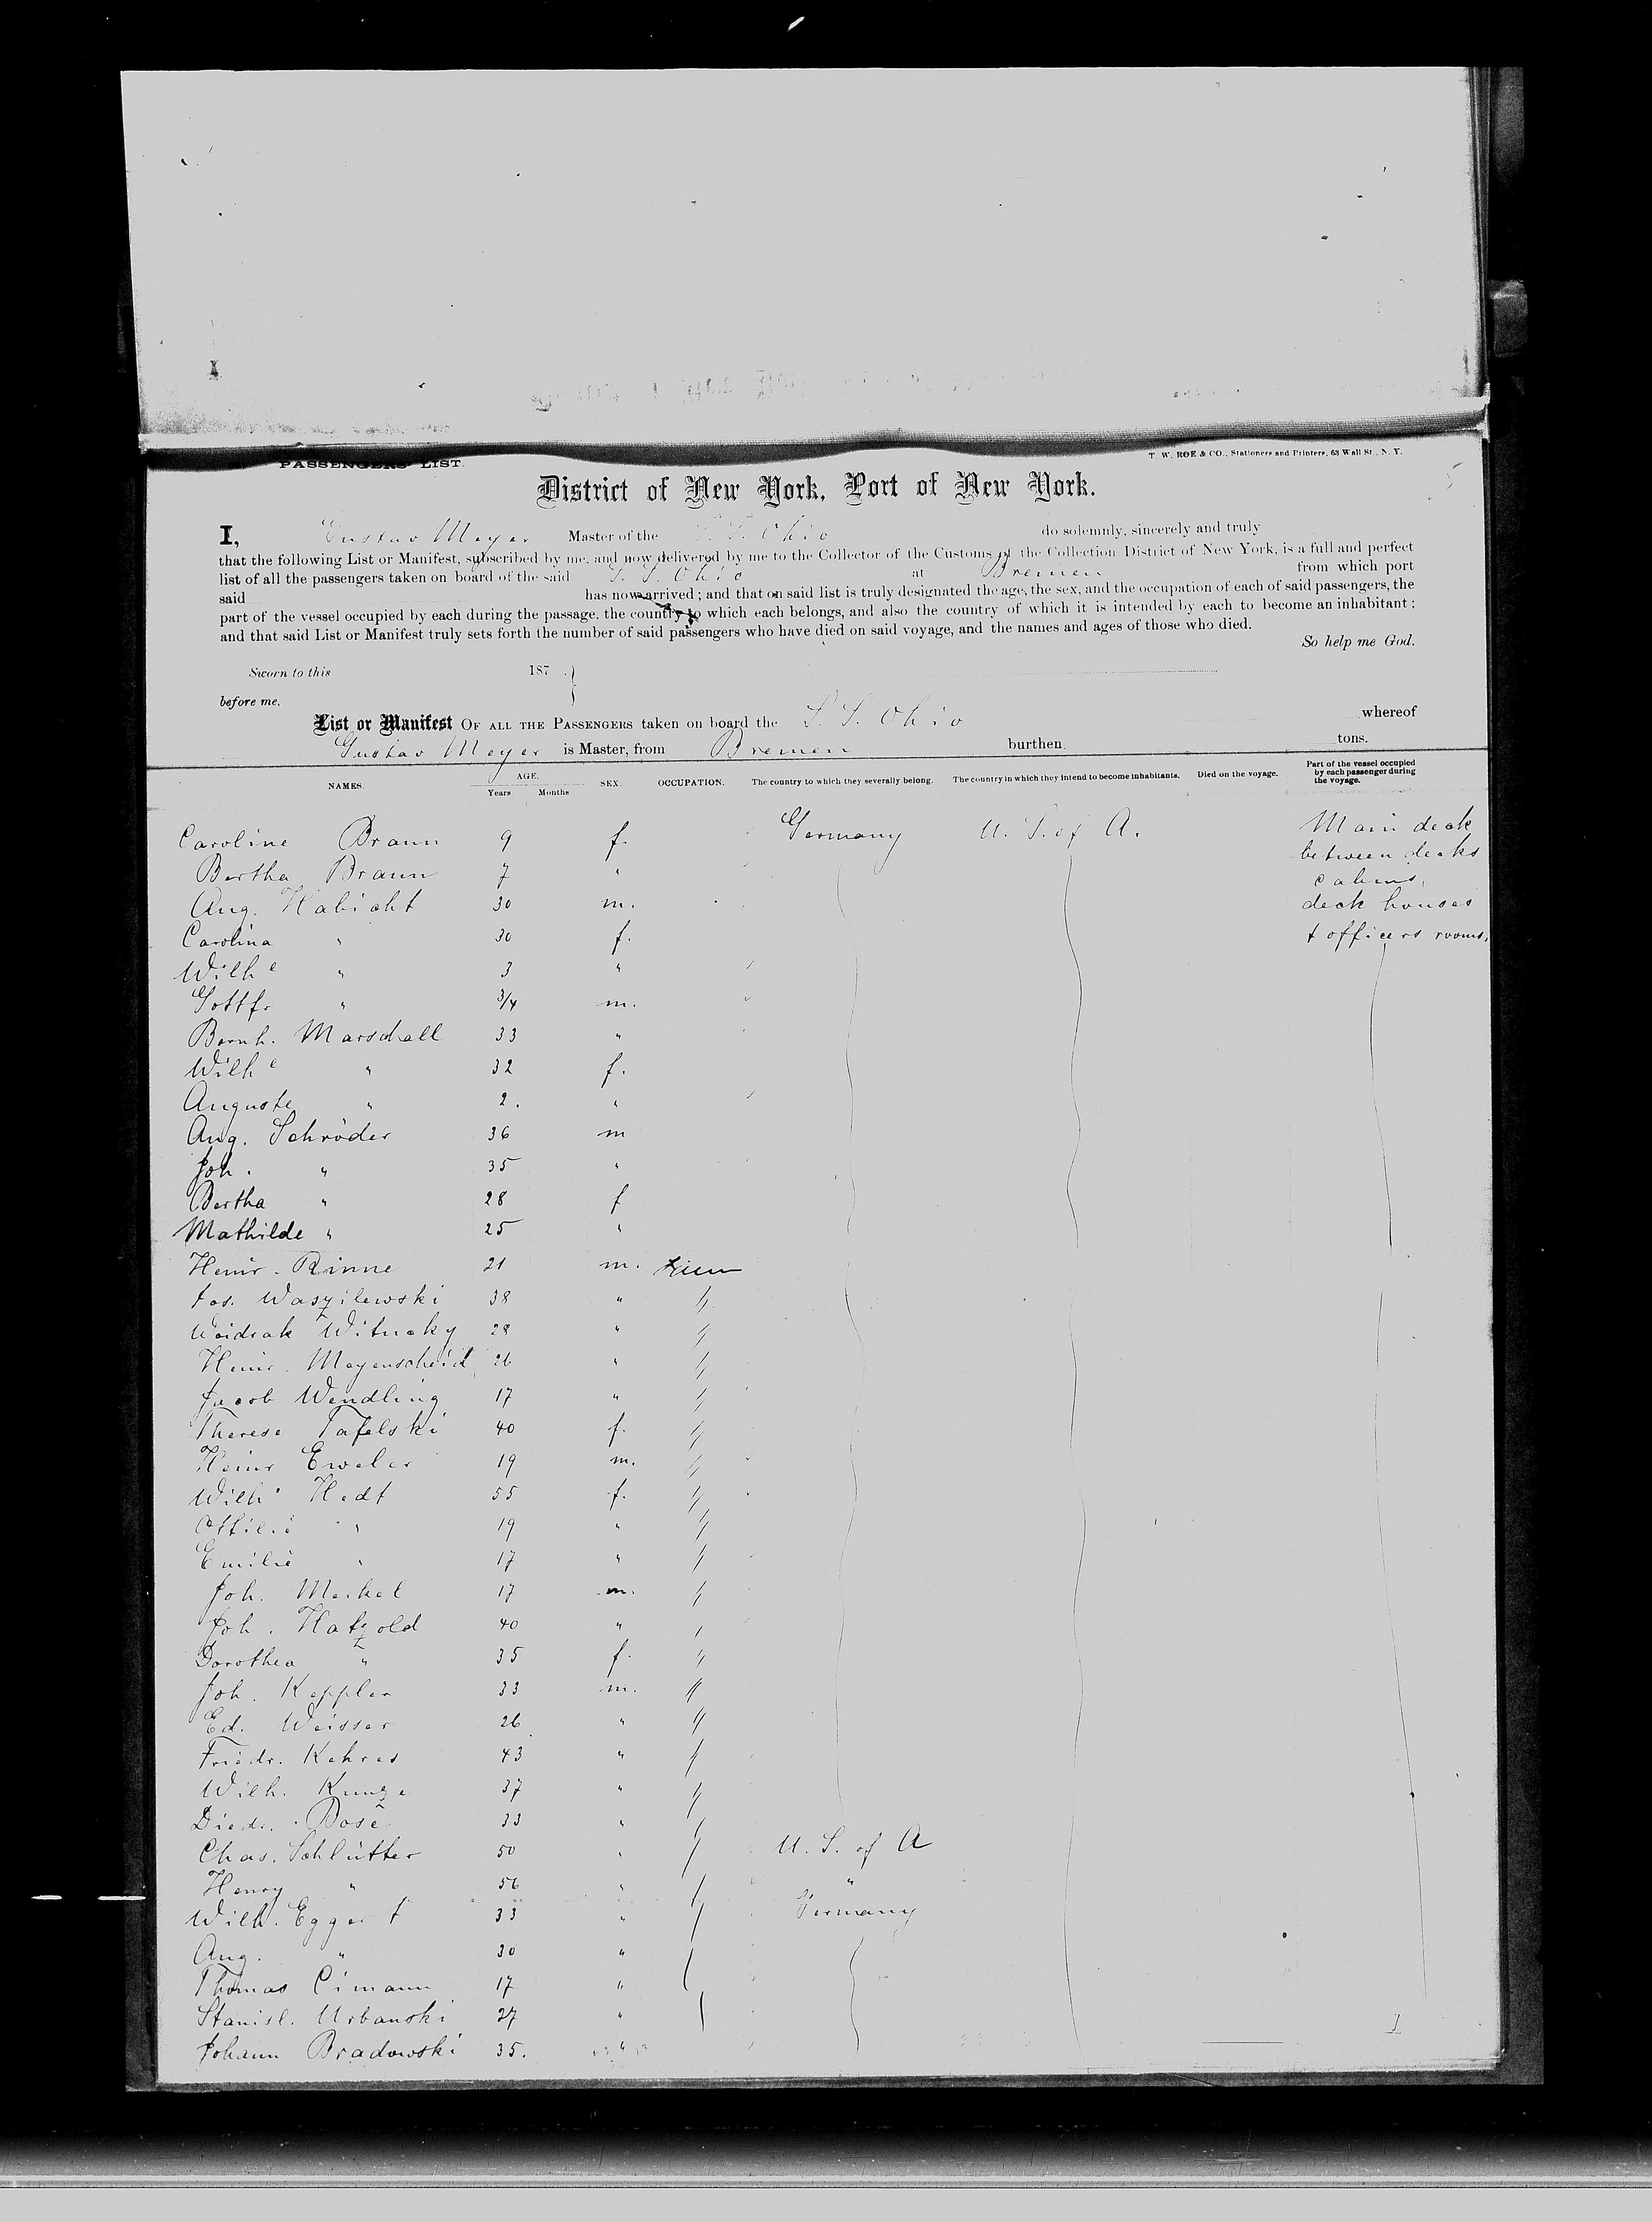 PASSENGERS' LIST.
T. W. ROE & CO., Stationers and Printers, 63 Wall St., N. Y.
District of New York, Port of New York.
I, Gustav Meyer Master of the S. S. Ohio do solemnly, sincerely and truly
that the following List or Manifest, subscribed by me, and now delivered by me to the Collector of the Customs of the Collection District of New York, is a full and perfect
list of all the passengers taken on board of the said S. S. Ohio at Bremen from which port
said has now arrived; and that on said list is truly designated the age, the sex, and the occupation of each of said passengers, the
part of the vessel occupied by each during the passage, the country to which each belongs, and also the country of which it is intended by each to become an inhabitant;
and that said List or Manifest truly sets forth the number of said passengers who have died on said voyage, and the names and ages of those who died.
So help me God.
Sworn to this 187
before me,
List or Manifest OF ALL THE PASSENGERS taken on board the S. S. Ohio whereof
Gustav Meyer is Master, from Bremen burthen. tons.
NAMES. AGE. Years Months SEX. OCCUPATION. The country to which they severally belong. The country in which they intend to become inhabitants. Died on the voyage. Part of the vessel occupied by each passenger during the voyage.
Caroline Braun 9 f. Germany U. S. of A. Main deck
Bertha Braun 7 " between decks
Aug. Habicht 30 m. cabins,
Carolina " 30 f. deck houses
Wilhe " 3 " + officers rooms.
Gottfr " 3/4 m.
Bernh. Marschall 33 "
Wilhe " 32 f.
Auguste " 2. "
Aug. Schröder 36 m
Joh. " 35 "
Bertha " 28 f
Mathilde " 25 "
Heinr. Rinne 21 m.
Jos. Waszilewski 38 " "
Witucky 28 " "
Heinr. Meyenscheid 26 " "
Jacob Wendling 17 " "
Therese Tafelski 40 f. "
Heinr Eweler 19 m. "
Wilhe Hedt 55 f. "
Ottilie " 19 " "
Emilie " 17 " "
Joh. Merkel 17 m. "
Joh. Hatzold 40 " "
Dorothea " 35 f. "
Joh. Keppler 33 m. "
Ed. Weisser 26 " "
Friedr. Kehres 43 " "
Wilh. Kunze 37 " "
Diedr. Bose 33 " "
Chas. Schlütter 50 " " U. S. of A
Henry " 56 " " "
Wilh. Eggert 33 " " Germany
Aug. " 30 "
Thomas Cimann 17 "
Stanisl. Urbanski 27 "
Johann Bradowski 35. "